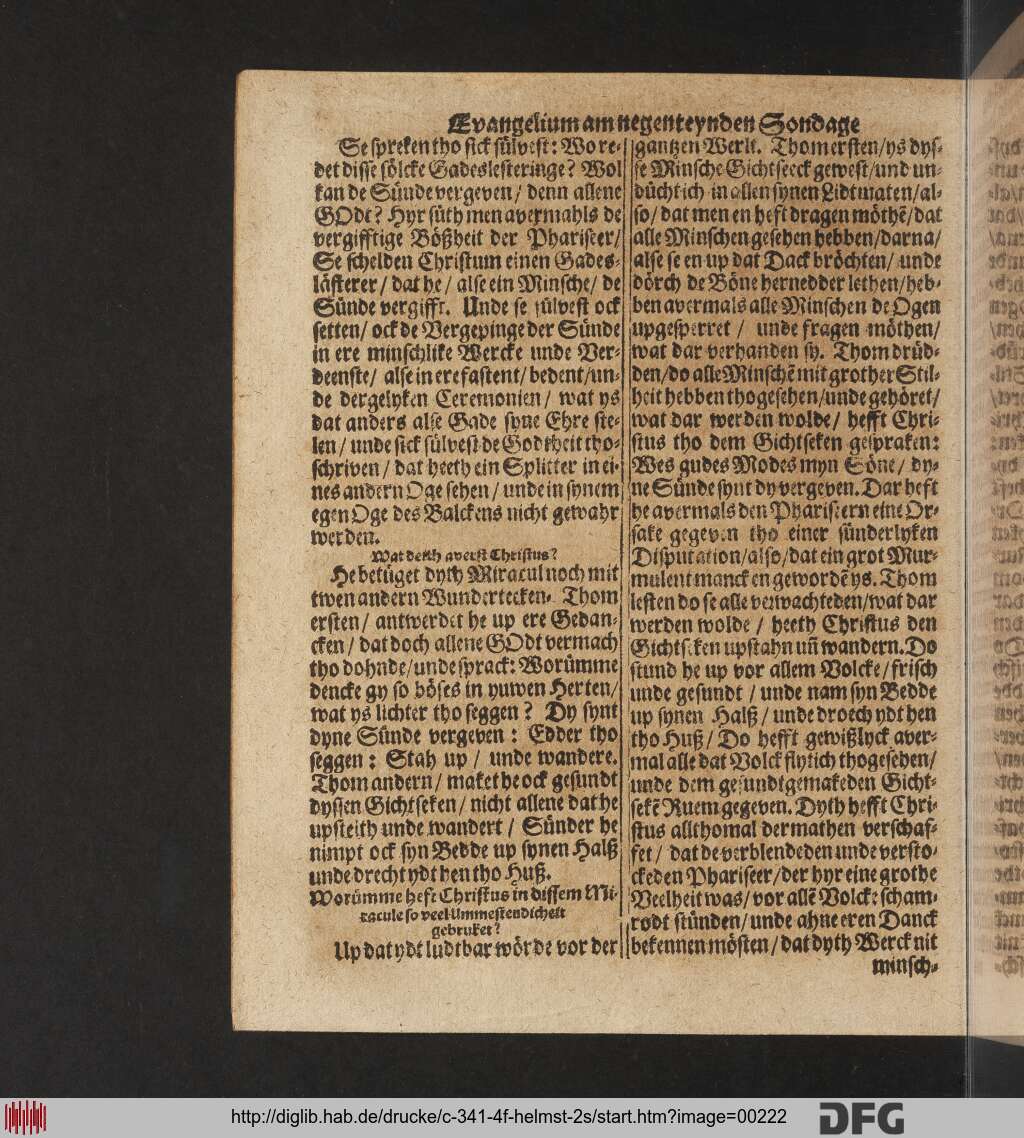 Evangelium am negenteynden Sondage
Se spreken tho sick sülvest: Wo re-
det disse sölcke Gadeslesteringe? Wol
kan de Sünde vergeven / denn allene
GOdt? Hyr süth men avermahls de
vergifftige Bößheit der Phariseer /
Se schelden Christum einen Gades-
lästerer / dat he / alse ein Minsche / de
Sünde vergifft. Unde se sülvest ock
setten / ock de Vergevinge der Sünde
in ere minschlike Wercke unde Ver-
deenste / alse in ere fastent / bedent / un-
de dergelyken Ceremonien / wat ys
dat anders alse Gade syne Ehre ste-
len / unde sick sülvest de Godtheit tho-
schriven / dat heeth ein Splitter in ei-
nes andern Oge sehen / unde in synem
egen Oge des Balckens nicht gewahr
werden.
Wat deith averst Christus?
He betüget dyth Miracul noch mit
twen andern Wundertecken. Thom
ersten / antwerdet he up ere Gedan-
cken / dat doch allene GOdt vermach
tho dohnde / unde sprack: Worümme
dencke gy so böses in yuwen Herten /
wat ys lichter tho seggen? Dy synt
dyne Sünde vergeven: Edder tho
seggen: Stah up / unde wandere.
Thom andern / maket he ock gesundt
dyssen Gichtseken / nicht allene dat he
upsteith unde wandert / Sünder he
nimpt ock syn Bedde up synen Halß
unde drecht ydt hen tho Huß.
Worümme heft Christus in dissem Mi-
racule so veel Ummestendicheit
gebruket?
Up dat ydt ludtbar wörde vor der
gantzen Werlt. Thom ersten / ys dys-
se Minsche Gichtseeck gewest / und un-
düchtich in allen synen Lidtmaten / al-
so / dat men en heft dragen möthē / dat
alle Minschen gesehen hebben / darna /
alse se en up dat Dack bröchten / unde
dörch de Böne hernedder lethen / heb-
ben avermals alle Minschen de Ogen
upgesperret / unde fragen möthen /
wat dar verhanden sy. Thom drüd-
den / do alle Minschē mit grother Stil-
heit hebben thogesehen / unde gehöret /
wat dar werden wolde / hefft Chri-
stus tho dem Gichtseken gespraken:
Wes gudes Modes myn Söne / dy-
ne Sünde synt dy vergeven. Dar heft
he avermals den Phariseern eine Or-
sake gegeven tho einer sünderlyken
Disputation / also / dat ein grot Mur-
mulent manck en gewordē ys. Thom
lesten do se alle verwachteden / wat dar
werden wolde / heeth Christus den
Gichtseken upstahn uñ wandern. Do
stund he up vor allem Volcke / frisch
unde gesundt / unde nam syn Bedde
up synen Halß / unde droech ydt hen
tho Huß / Do hefft gewißlyck aver-
mal alle dat Volck flytich thogesehen /
unde dem gesundtgemakeden Gicht-
sekē Ruem gegeven. Dyth hefft Chri-
stus allthomal dermathen verschaf-
fet / dat de verblendeden unde versto-
ckeden Phariseer / der hyr eine grothe
Veelheit was / vor allē Volcke scham-
rodt stünden / unde ahne eren Danck
bekennen mösten / dat dyth Werck nit
minsch-
http://diglib.hab.de/drucke/c-341-4f-helmst-2s/start.htm?image=00222
DFG